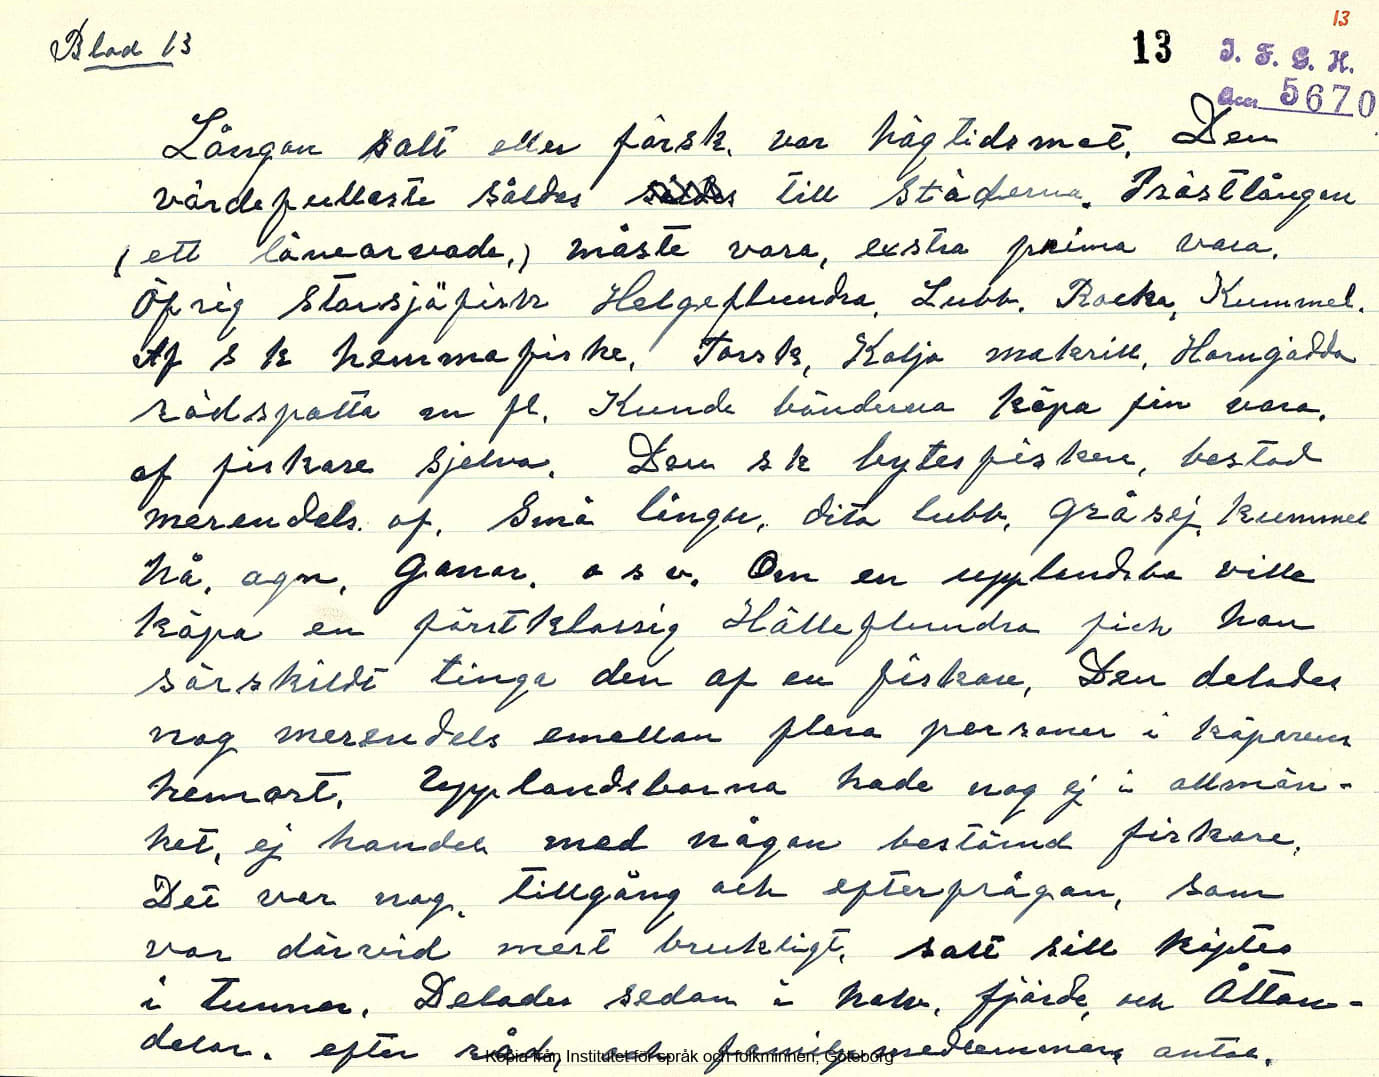 13
Blad 13
13
I. F. G. H.
Acc. 5670
Långan salt eller färsk. var högtidsmat. Den
värdefullaste såldes till städerna. Prästlångan
(ett lönearvode,) måste vara, exstra prima vara.
Öfrig storsjöfisk Helgeflundra. Lubb. Rocka, Kummel.
Af s k hemmafiske. Torsk, Kolja makrill, Horngädda
rödspotta m fl. Kunde bönderna köpa fin vara.
af fiskare sjelva. Den s k bytesfisken, bestod
merendels. af. Små långor, dito lubb, Gråsej, kummel
hå, agn, Ganar. o s v. Om en upplandsbo ville
köpa en förstklassig Hälleflundra fick han
särskildt tinga den af en fiskare, Den delades
nog merendels emellan flera personer i köparens
hemort. Upplandsborna hade nog ej i allmän-
het, ej handel med någon bestämd fiskare.
Det var nog, tillgång och efterfrågan, som
var därvid mest brukligt. salt sill köptes
i tunnor. Delades sedan i halv. fjärde, och Åtton-
delar. efter råd, och familjemedlemmars antal.
Kopia från Institutet för språk och folkminnen, Göteborg